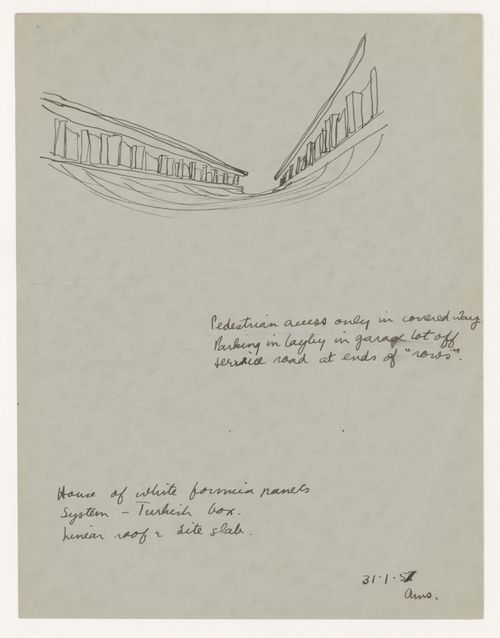 Pedestrian access only in covered way
Parking in layby in garage lot off
service road at ends of "rows".
House of white formica panels
System – Turkish box.
Linear roof & site slab.
31·1·57
Ams.